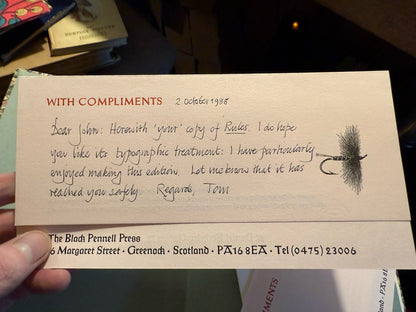 WITH COMPLIMENTS 2 October 1988
Dear John: Herewith 'your' copy of Rules. I do hope
you like its typographic treatment: I have particularly
enjoyed making this edition. Let me know that it has
reached you safely Regards, Tom
The Black Pennell Press
6 Margaret Street · Greenock · Scotland · PA16 8EA · Tel (0475) 23006
COMPLIMENTS
land · PA16 8E